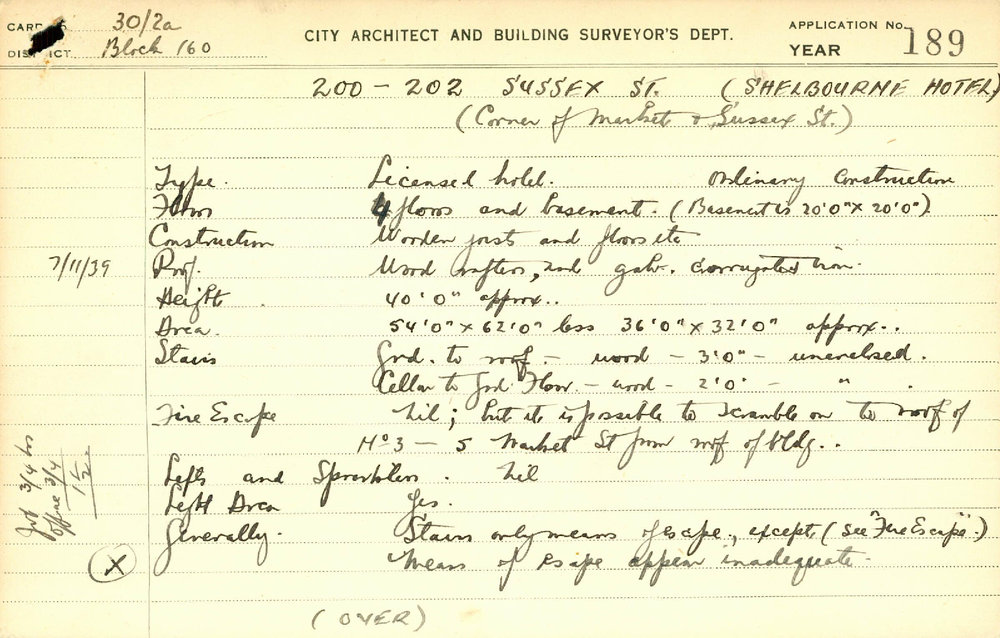 CARD No. 30/2a
DISTRICT Block 160
CITY ARCHITECT AND BUILDING SURVEYOR'S DEPT.
APPLICATION No. 189
YEAR
200 - 202 SUSSEX ST. (SHELBOURNE HOTEL)
(Corner of Market & Sussex St.)
Type. Licensed hotel. Ordinary Construction
Floors 4 floors and basement. (Basement is 20'0" x 20'0")
Construction Wooden joists and floors etc
7/11/39 Roof. Wood rafters, and galv. corrugated iron.
Height 40'0" approx..
Area. 54'0" x 62'0" less 36'0" x 32'0" approx..
Stairs Grd. to roof - wood - 3'0" - unenclosed.
Cellar to Grd Floor - wood - 2'0" - " .
Fire Escape Nil; but it is possible to scramble on to roof of
No 3 - 5 Market St from roof of bldg..
Lifts and Sprinklers. Nil
Light Area Yes.
Generally. Stairs only means of escape, except (see "Fire Escape".)
Means of escape appear inadequate.
Job 3/4 hrs
office 3/4
1 1/2
X
(OVER)